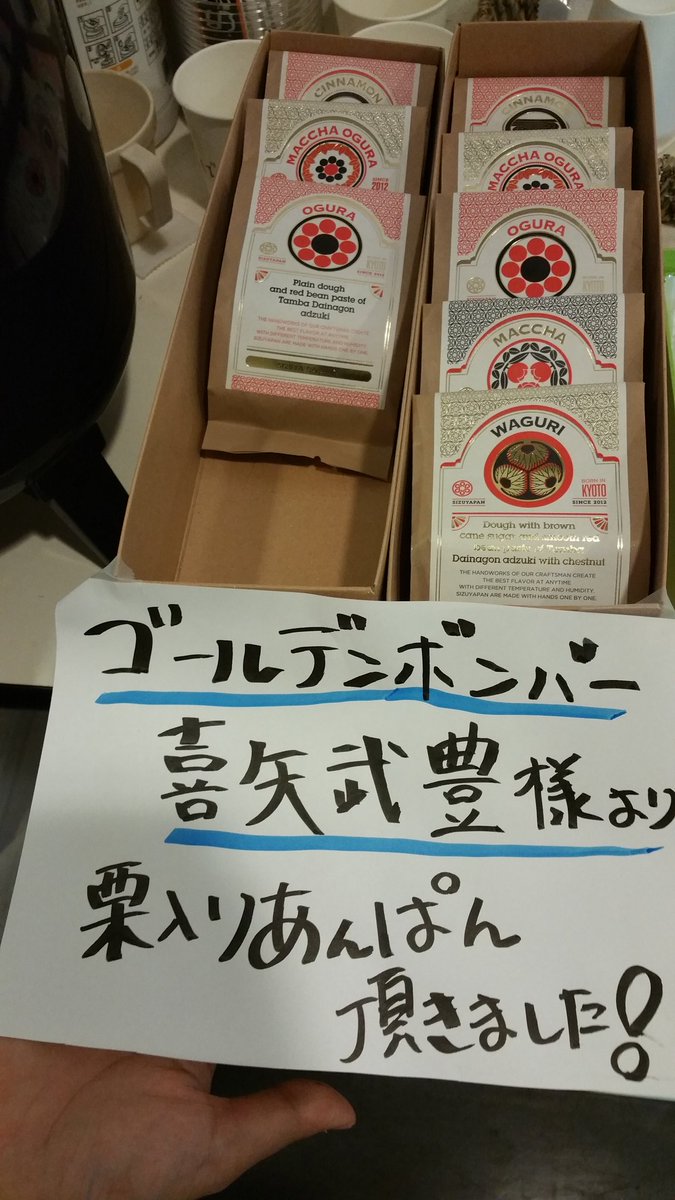 CINNAMON
MACCHA OGURA
SINCE
2012
OGURA
SIZUYAPAN
BORN IN
KYOTO
SINCE 2012
Plain dough
and red bean paste of
Tamba Dainagon
adzuki
THE HANDWORKS OF OUR CRAFTSMAN CREATE
THE BEST FLAVOR AT ANYTIME
WITH DIFFERENT TEMPERATURE AND HUMIDITY.
SIZUYAPAN ARE MADE WITH HANDS ONE BY ONE.
CINNAMO
MACCHA OGURA
OGURA
MACCHA
WAGURI
SIZUYAPAN
BORN IN
KYOTO
SINCE 2012
Dough with brown
cane sugar and smooth red
bean paste of Tamba
Dainagon adzuki with chestnut
THE HANDWORKS OF OUR CRAFTSMAN CREATE
THE BEST FLAVOR AT ANYTIME
WITH DIFFERENT TEMPERATURE AND HUMIDITY.
SIZUYAPAN ARE MADE WITH HANDS ONE BY ONE.
ゴールデンボンバー
喜矢武豊様より
栗入りあんぱん
頂きました!